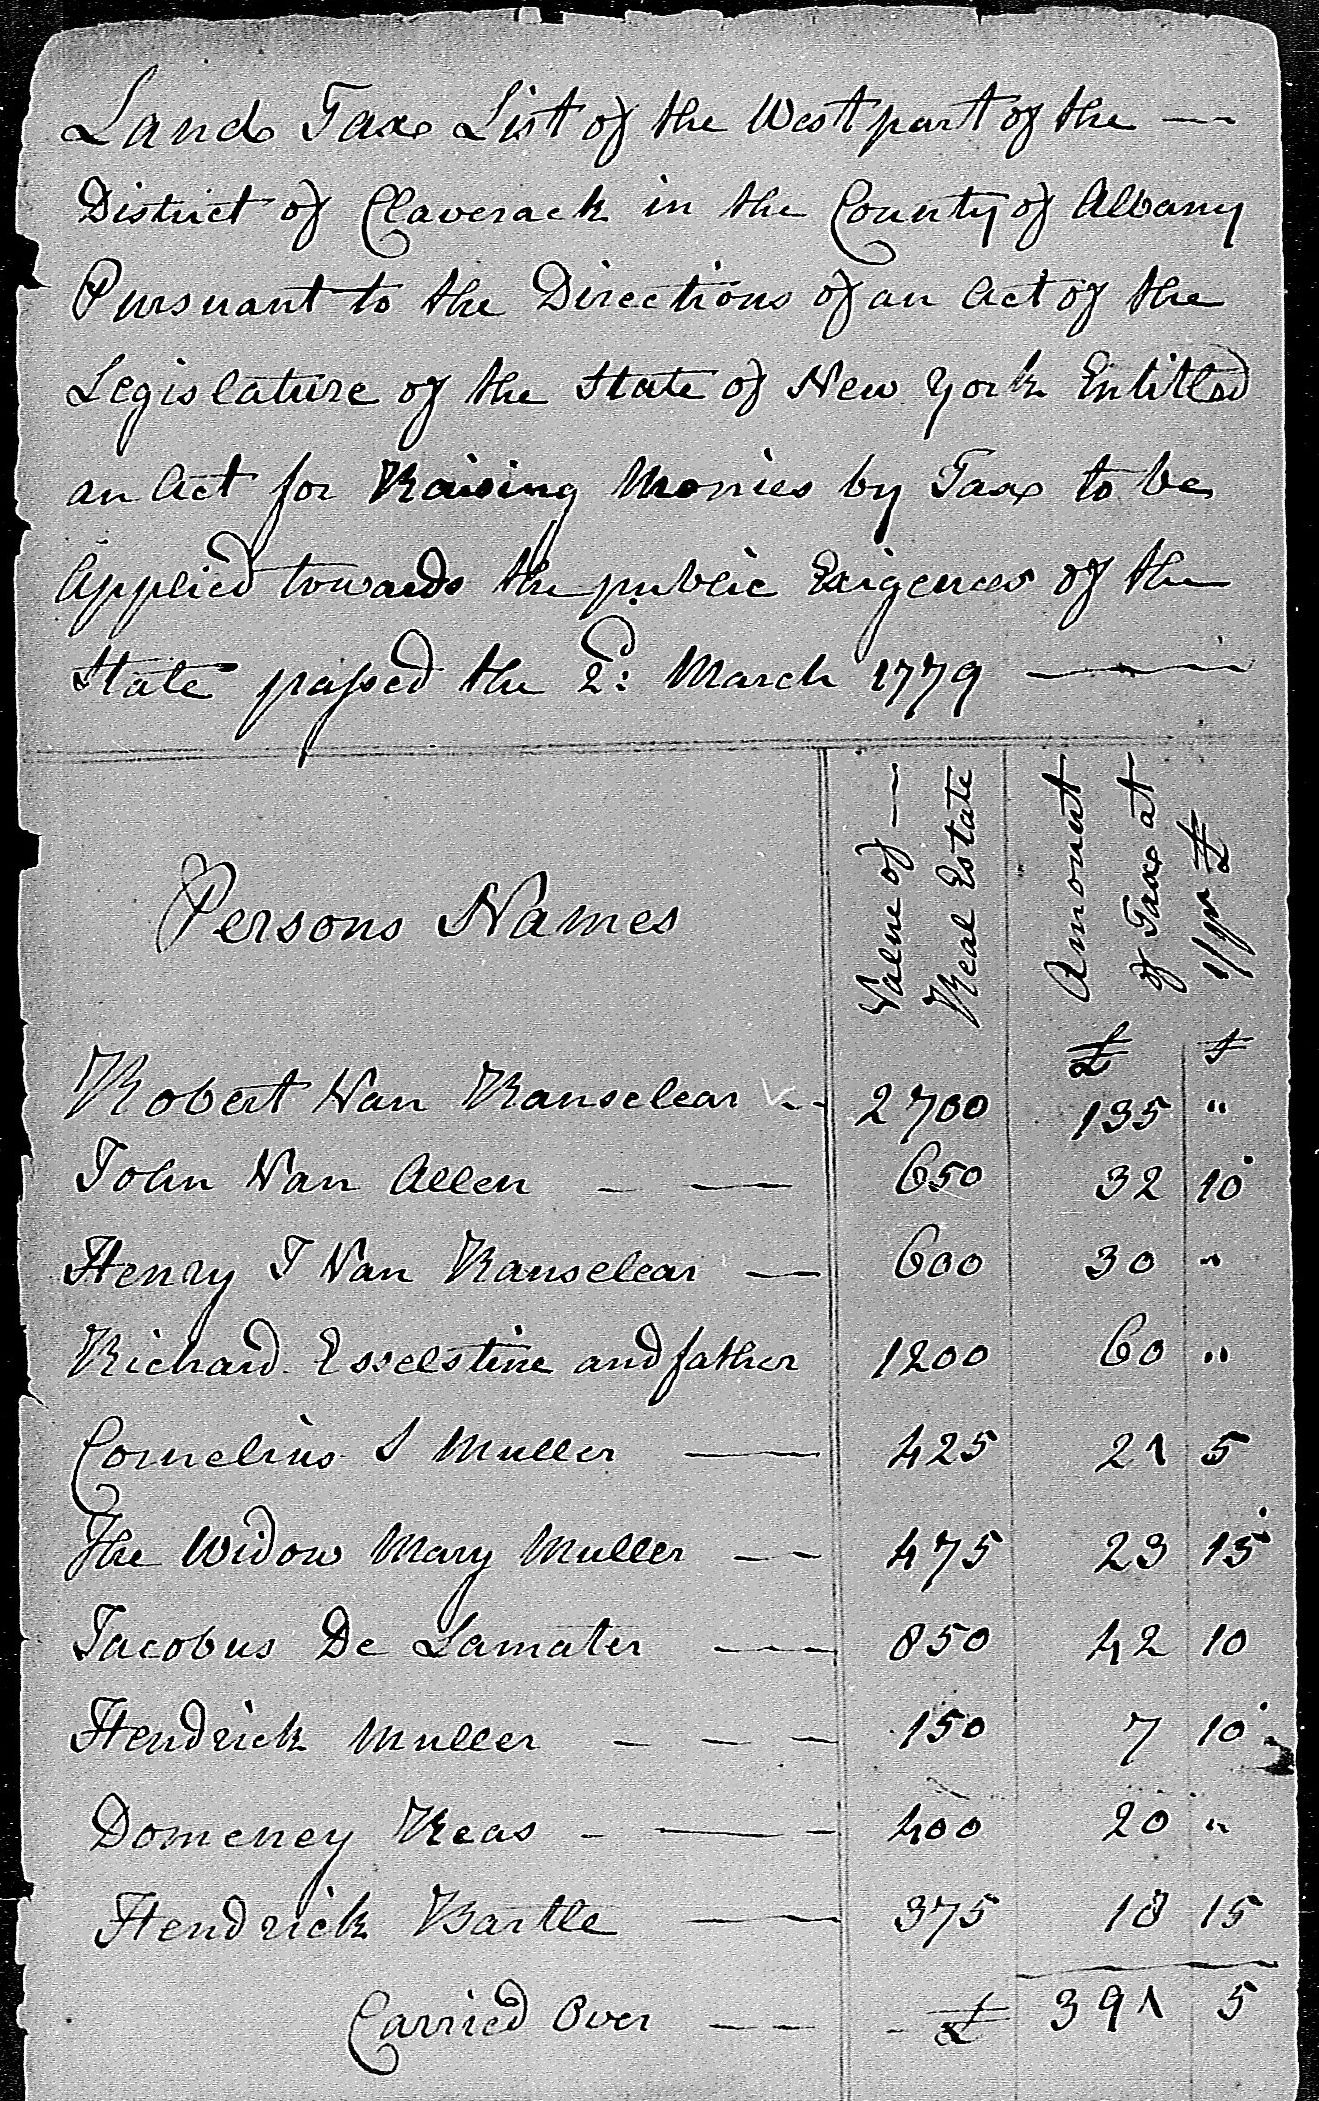 Land Tax List of the West part of the —
District of Claverack in the County of Albany
Pursuant to the Directions of an Act of the
Legislature of the State of New York Entitled
an Act for Raising Monies by Tax to be
Applied towards the public Exigences of the
State passed the 2d: March 1779 —
Persons Names
Value of —
Real Estate
Amount
of Tax at
1/ pr £
£ s
Robert Van Ranselear 2700 135 "
John Van Allen — — 650 32 10
Henry I Van Ranselear — 600 30 "
Richard Esselstine and father 1200 60 "
Cornelius S Muller — 425 21 5
The Widow Mary Muller — — 475 23 15
Jacobus De Lamater — 850 42 10
Hendrick Muller — — — 150 7 10
Domeney Keas - — - 400 20 "
Hendrick Bartle — 375 18 15
Carried Over — — - £ 391 5